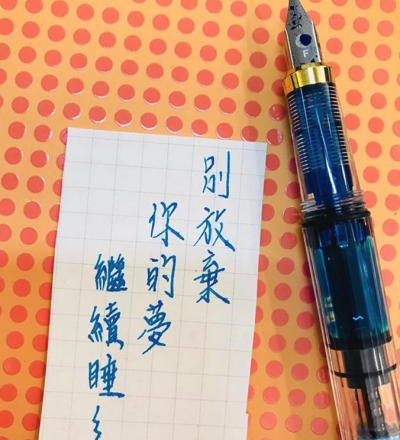 別放棄
你的夢
繼續睡
F